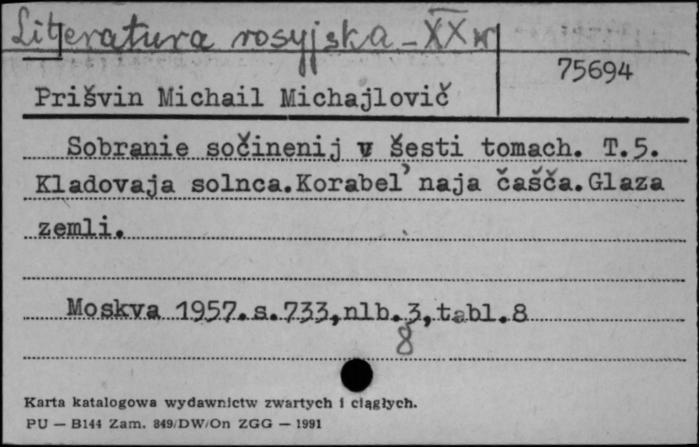 Literatura rosyjska - XX w
75694
Prišvin Michail Michajlovič
Sobranie sočinenij v šesti tomach. T.5.
Kladovaja solnca.Korabel'naja čašča.Glaza
zemli.
Moskva 1957.s.733,nlb.3,tabl.8
8
Karta katalogowa wydawnictw zwartych i ciągłych.
PU — B144 Zam. 849/DW/On ZGG — 1991